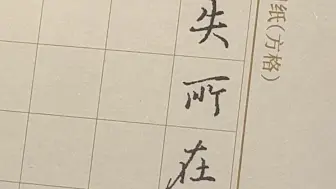 纸(方格)
失所在